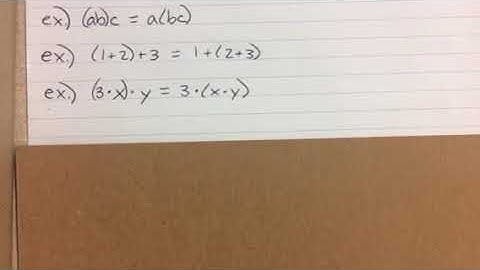 ex.) (ab)c = a(bc)
ex.) (1+2)+3 = 1+(2+3)
ex.) (3·x)·y = 3·(x·y)